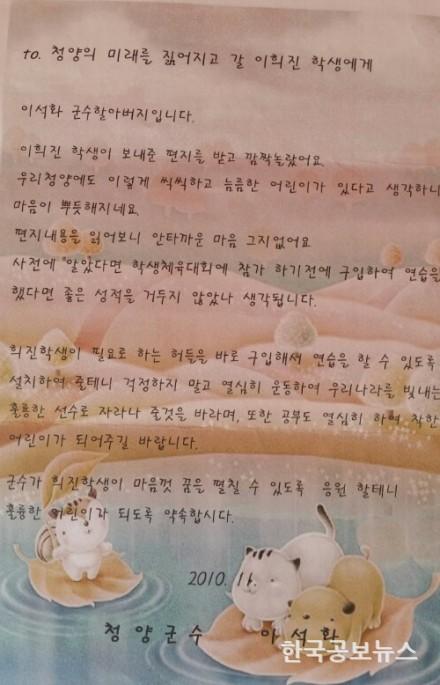 to. 청양의 미래를 짊어지고 갈 이희진 학생에게
이석화 군수할아버지입니다.
이희진 학생이 보내준 편지를 받고 깜짝놀랐어요
우리청양에도 이렇게 씩씩하고 늠름한 어린이가 있다고 생각하니
마음이 뿌듯해지네요.
편지내용을 읽어보니 안타까운 마음 그지없어요
사전에 알았다면 학생체육대회에 참가 하기전에 구입하여 연습을
했다면 좋은 성적을 거두지 않았나 생각됩니다.
희진학생이 필요로 하는 허들을 바로 구입해서 연습을 할 수 있도록
설치하여 줄테니 걱정하지 말고 열심히 운동하여 우리나라를 빛내는
훌륭한 선수로 자라나 줄것을 바라며, 또한 공부도 열심히 하여 착한
어린이가 되어주길 바랍니다.
군수가 희진학생이 마음껏 꿈을 펼칠 수 있도록 응원 할테니
훌륭한 어린이가 되도록 약속합시다.
2010. 11.
청양군수 이석화
한국공보뉴스